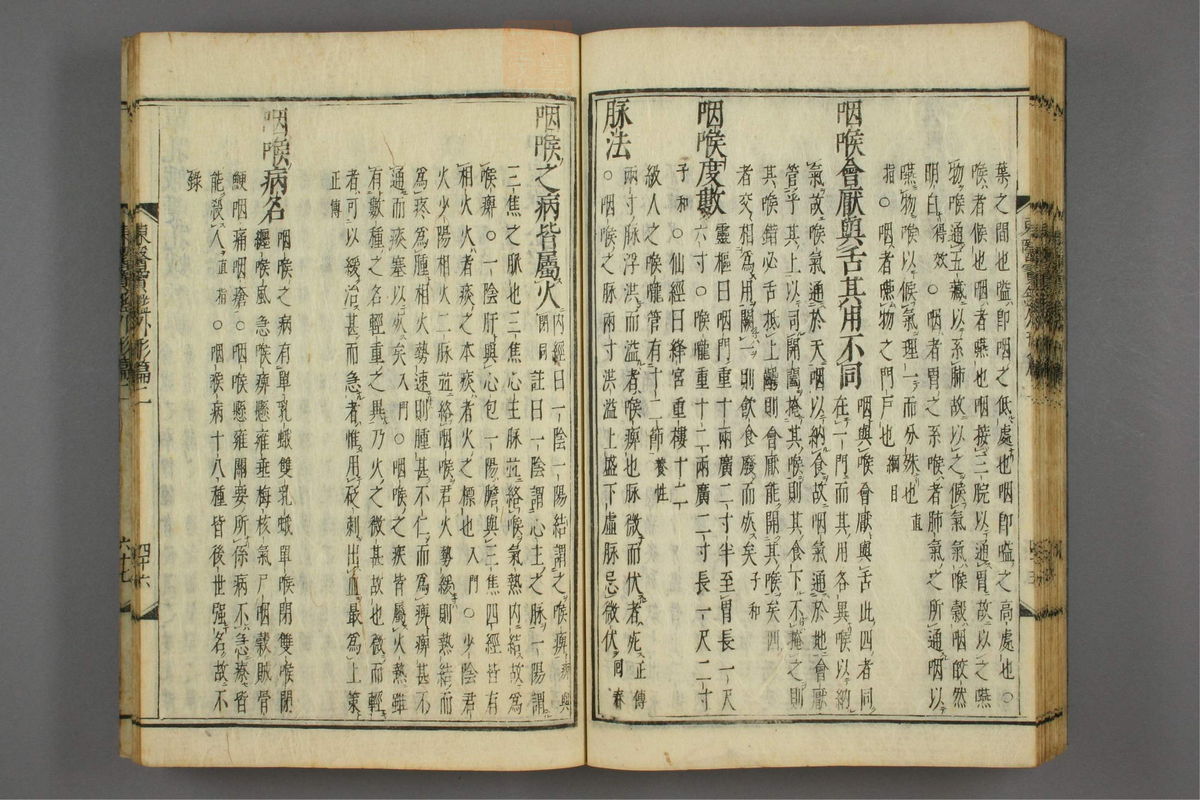 葉之間也嗌即咽之低處也咽即嗌之高處也○
喉者候也咽者嚥也咽接三脘以通胃故以之嚥
物喉通五藏以系肺故以之候氣氣喉穀咽皎然
明白得效○咽者胃之系喉者肺氣之所通咽以
嚥物喉以候氣理一而分殊也直
指○咽者嚥物之門戶也綱目
咽喉會厭與舌其用不同咽與喉會厭與舌此四者同
在一門而其用各異喉以納
氣故喉氣通於天咽以納食故咽氣通於地會厭
管乎其上以司開闔掩其喉則其食下不掩之則
其喉錯必舌抵上齶則會厭能開其喉矣四
者交相為用闕一則飲食廢而死矣子和
咽喉度數靈樞曰咽門重十兩廣二寸半至胃長一尺
六寸○喉嚨重十二兩廣二寸長一尺二寸
子和○仙經曰絳宮重樓十二
級人之喉嚨管有十二節養性
脉法兩寸脉浮洪而溢者喉痺也脉微而伏者死正傳
○咽喉之脉兩寸洪溢上盛下虛脉忌微伏回春
咽喉之病皆屬火內經曰一陰一陽結謂之喉痺病與
閉同註曰一陰謂心主之脉一陽謂
三焦之脉也三焦心主脉並絡喉氣熱內結故爲
喉痺○一陰肝與心包一陽膽與三焦四經皆有
相火火者痰之本痰者火之標也入門○少陰君
火少陽相火二脉並絡咽喉君火勢緩則熱結而
爲疼爲腫相火勢速則腫甚不仁而爲痺痺甚不
通而痰塞以死矣入門○咽喉之疾皆屬火熱雖
有數種之名輕重之異乃火之微甚故也微而輕
者可以緩治甚而急者惟用砭刺出血最爲上策
正傳
咽喉病名咽喉之病有單乳蛾雙乳蛾單喉閉雙喉閉
纏喉風急喉痺懸雍垂梅核氣尸咽穀賊骨
鯁咽痛咽瘡○咽喉懸雍關要所係病不急療皆
能殺人直指○咽喉病十八種皆後世强名故不
錄
東醫寶鑑外形篇二
四十六